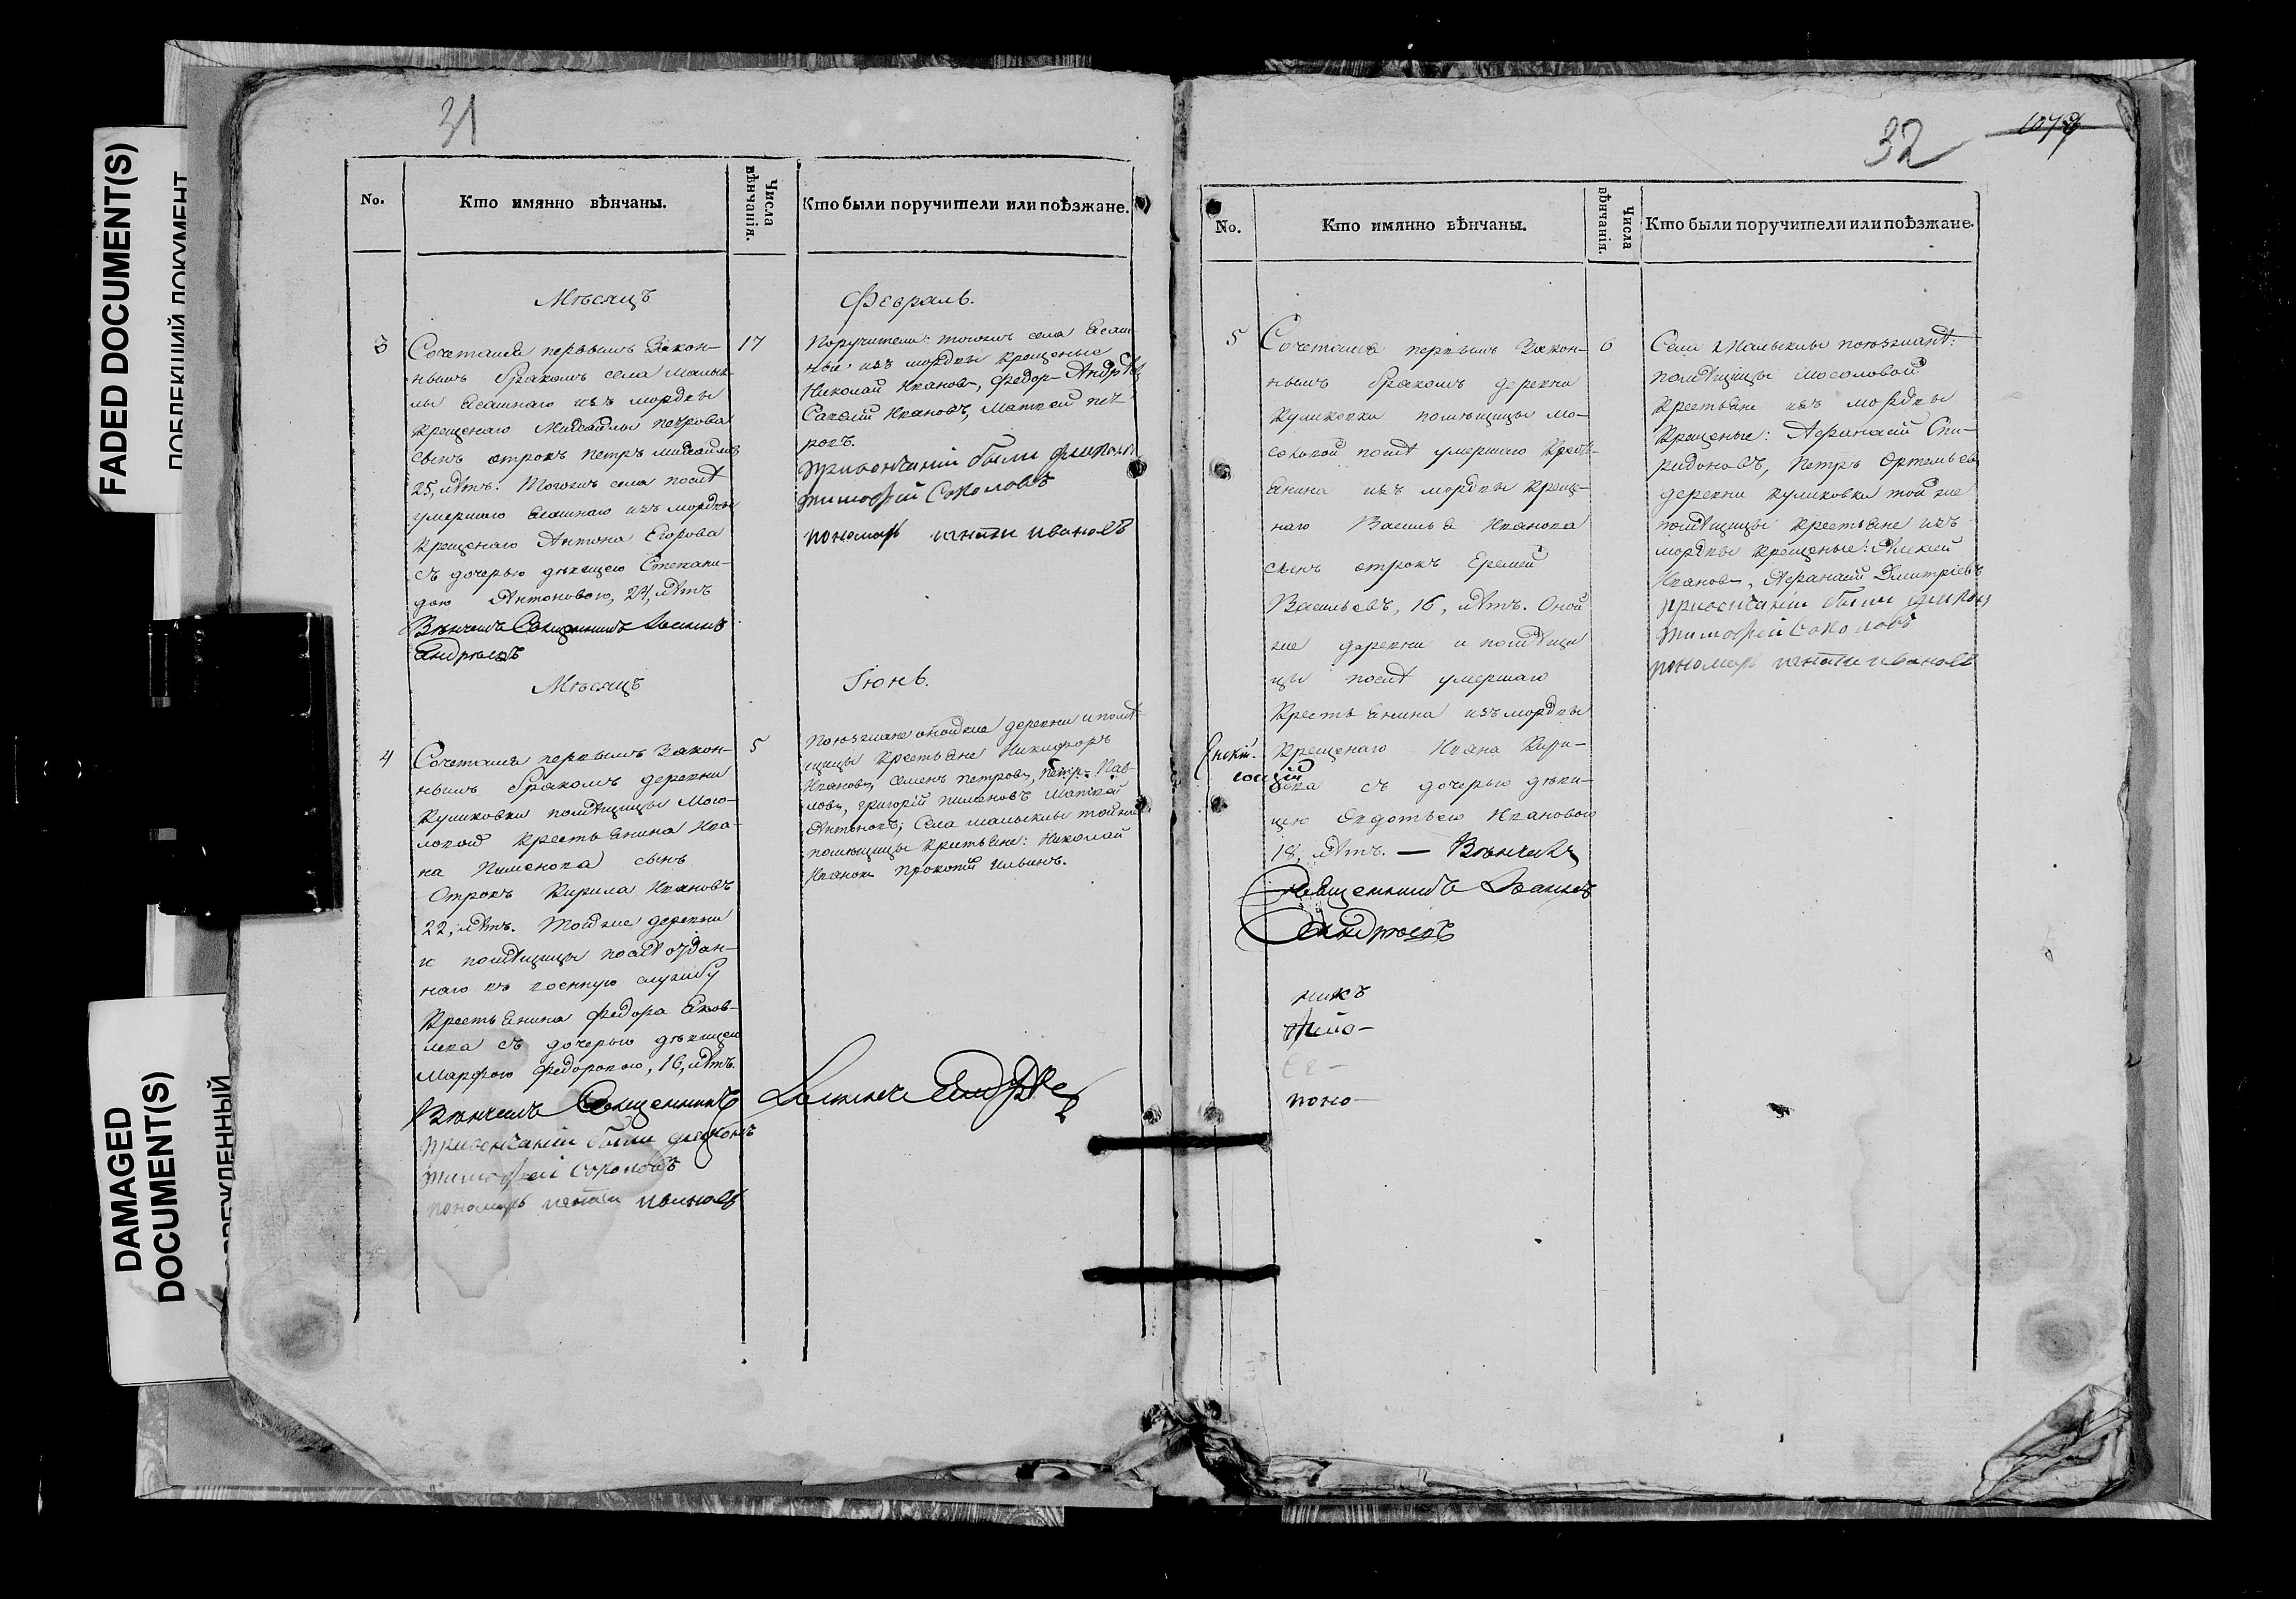 FADED DOCUMENT(S)
DAMAGED
DOCUMENT(S)
31
No.
Кто имянно вѣнчаны.
Числа вѣнчанія.
Кто были поручители или поѣзжане.
Мѣсяцъ
Февраль.
3
Сочетался первымъ Закон-
нымъ бракомъ села Малык-
лы Ясашнаго изъ мордвы
крещенаго Михайлы Петрова
сынъ отрокъ Петръ Михайловъ
25, лѣтъ. Тогожъ села послѣ
умершаго Ясашнаго изъ мордвы
крещенаго Антона Егорова
съ дочерью дѣвицею Степани-
дою Антоновою, 24, лѣтъ
Вѣнчалъ Священникъ
Андреевъ
17
Поручители: тогожъ села Ясаш-
ные изъ мордвы крещеные
Николай Ивановъ, Федор Андреев
Савелий Ивановъ, Матвей Пет-
ровъ.
привенчаніи были
тимофей Соколовъ
пономарь игнати ивановъ
Мѣсяцъ
Іюнь.
4
Сочетался первымъ Закон-
нымъ бракомъ деревни
Куликовки помѣщицы Мосо-
ловой крестьянина Ива-
на Пименова сынъ
Отрокъ Кирила Ивановъ
22, лѣтъ. Тойже деревни
и помѣщицы послѣ отдан-
наго въ военную службу
крестьянина Федора Яков-
лева съ дочерью дѣвицею
Марфою Федоровою, 16, лѣтъ.
Вѣнчалъ Священникъ
привенчаніи были
тимофей Соколовъ
пономарь игнати ивановъ
5
Поѣзжане онойже деревни и помѣ-
щицы крестьяне Никифоръ
Ивановъ, Семенъ Петровъ, Петръ Пав-
ловъ, Григорій Пименовъ Матвей
Антоновъ; Села малыклы тойже
помѣщицы крестьяне: Николай
Иванов Прокопий Ильинъ.
32
No.
Кто имянно вѣнчаны.
Числа вѣнчанія.
Кто были поручители или поѣзжане.
5
Сочетался первымъ Закон-
нымъ бракомъ деревни
Куликовки помѣщицы Мо-
соловой послѣ умершаго крестъ-
янина изъ мордвы креще-
наго Василья Иванова
сынъ отрокъ Еремей
Васильевъ, 16, лѣтъ. Оной
же деревни и помѣщи
цы послѣ умершаго
крестьянина изъ мордвы
крещенаго Ивана
съ дочерью дѣви-
цею Авдотьею Ивановою
18, лѣтъ. — Вѣнчалъ
Священникъ
Андреевъ
никъ
тимо-
ее-
поно-
6
Села Малыклы поѣзжанѣ:
помѣщицы мосоловой
крестьяне изъ мордвы
крещеные: Афанасий Спи-
ридоновъ, Петръ Артемьевъ
деревни куликовки той же
помѣщицы крестьяне изъ
мордвы крещеные:
Иванов, Афанасий Дмитріевъ
привенчаніи были
тимофей Соколовъ
пономарь игнати ивановъ